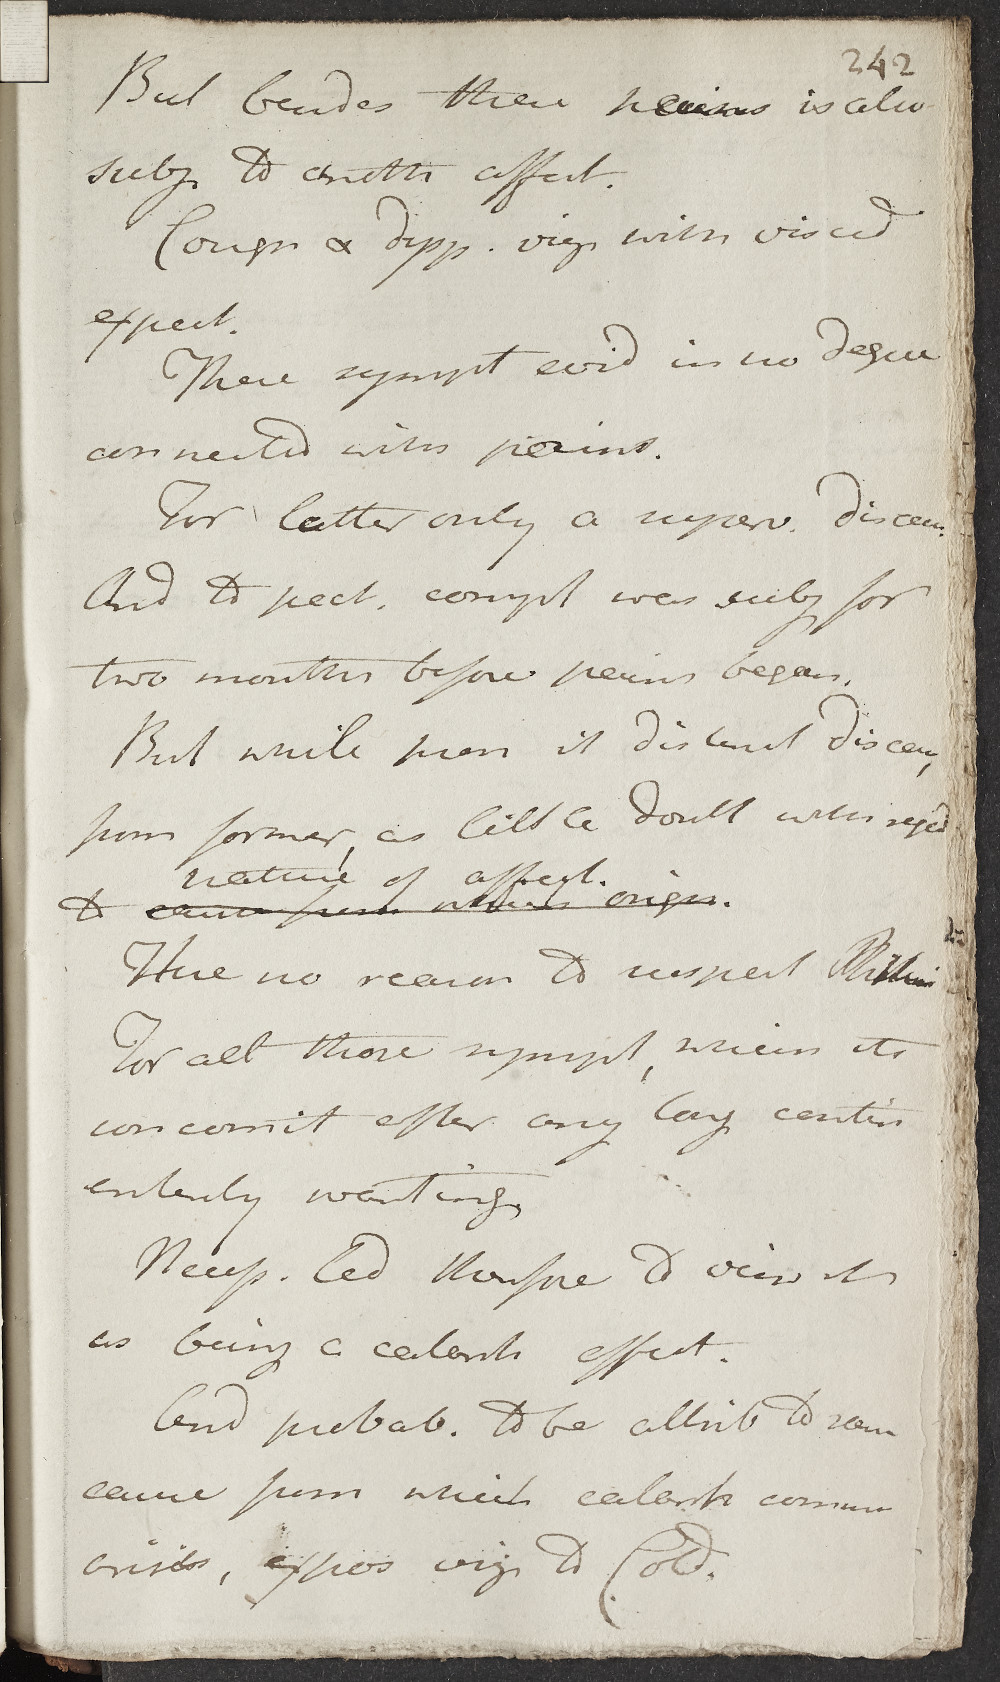 242
But besides these pains is also
subj to anoth affect.
Cough & dysp. viz with viscid
expect.
These sympt evid in no degree
connected with pains.
For latter only a superv. diseas.
And to pect. compl was subj for
two months before pains began.
But while from it distinct diseas,
from former, as little doubt with regd
nature of affect.
to cause from which origin.
Here no reason to suspect Phthisis
For all those sympt, which its
concomit after any long contin
entirely wanting.
Necess. led therefore to view it
as being a catarrh affect.
And probab. to be attrib to same
cause from which catarrh commun
arises, expos viz to Cold.